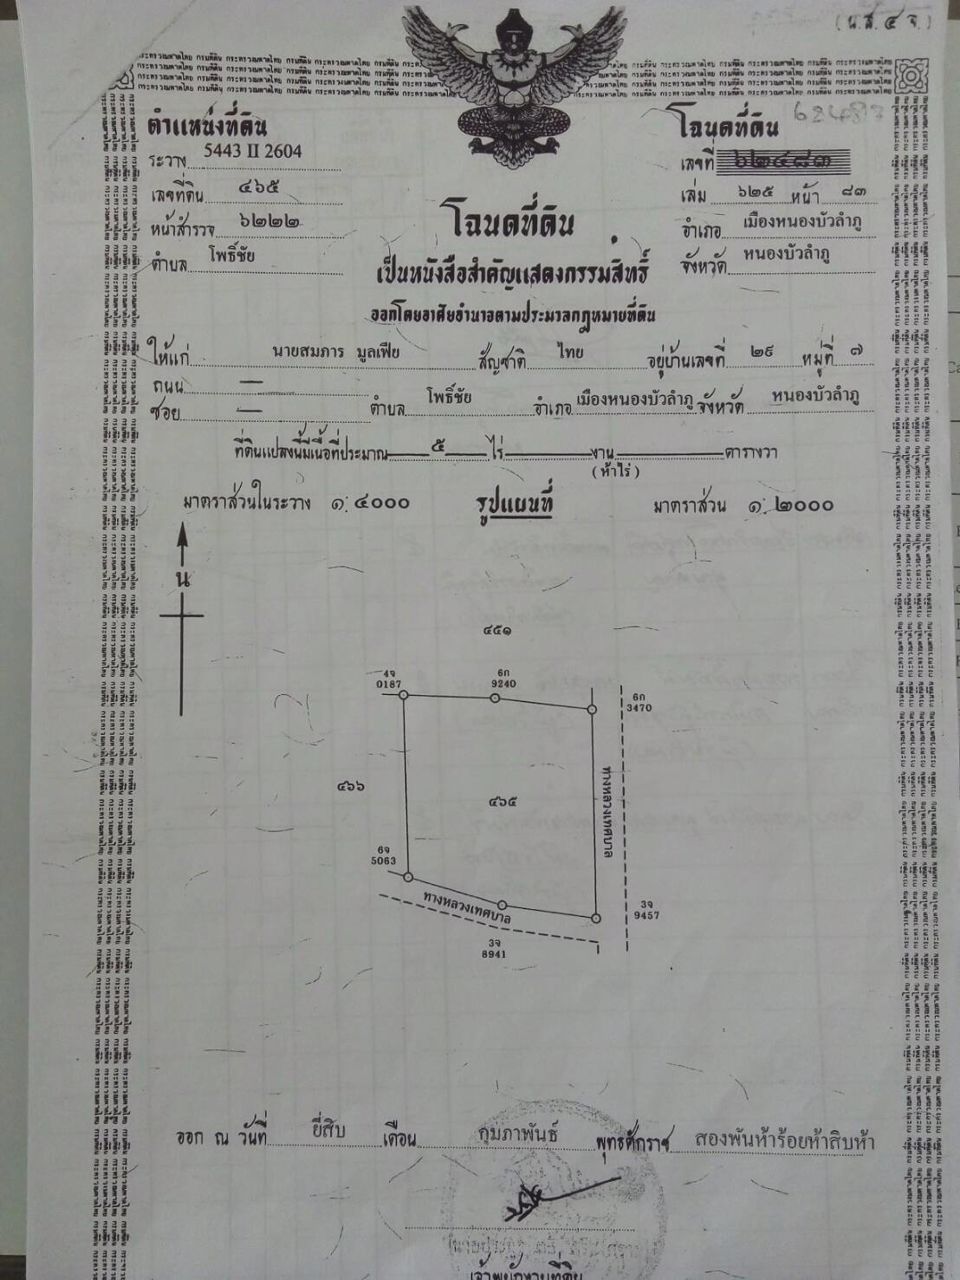 (น.ส. ๔ จ.)
ตำแหน่งที่ดิน
ระวาง 5443 II 2604
เลขที่ดิน ๔๖๕
หน้าสำรวจ ๖๒๒๒
ตำบล โพธิ์ชัย
โฉนดที่ดิน
เลขที่ ๖๒๔๘๓
เล่ม ๖๒๕ หน้า ๘๓
อำเภอ เมืองหนองบัวลำภู
จังหวัด หนองบัวลำภู
โฉนดที่ดิน
เป็นหนังสือสำคัญแสดงกรรมสิทธิ์
ออกโดยอาศัยอำนาจตามประมวลกฎหมายที่ดิน
ให้แก่ นายสมภาร มูลเฟีย สัญชาติ ไทย อยู่บ้านเลขที่ ๒๙ หมู่ที่ ๗
ถนน —
ซอย — ตำบล โพธิ์ชัย อำเภอ เมืองหนองบัวลำภู จังหวัด หนองบัวลำภู
ที่ดินแปลงนี้มีเนื้อที่ประมาณ ๕ ไร่ งาน ตารางวา
(ห้าไร่)
มาตราส่วนในระวาง ๑:๔๐๐๐ รูปแผนที่ มาตราส่วน ๑:๒๐๐๐
น
๔๕๑
4จ
0187
6ก
9240
6ก
3470
๔๖๖
๔๖๕
ทางหลวงเทศบาล
6จ
5063
ทางหลวงเทศบาล
3จ
9457
3จ
8941
ออก ณ วันที่ ยี่สิบ เดือน กุมภาพันธ์ พุทธศักราช สองพันห้าร้อยห้าสิบห้า
เจ้าพนักงานที่ดิน